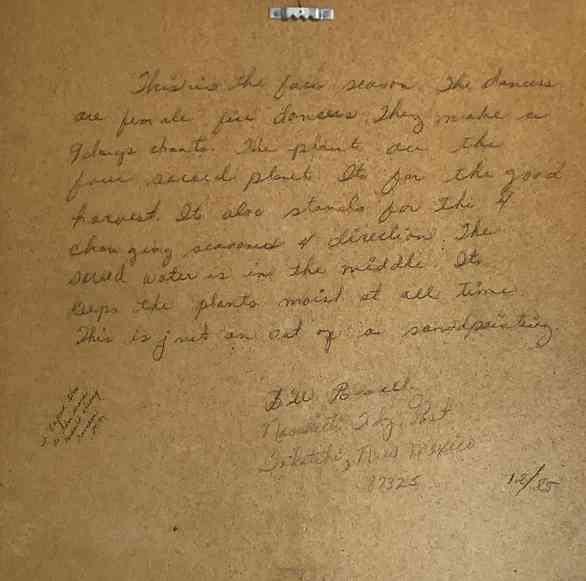 This is the four season. The dancers
are female fire dancers. They make a
9 days chants. The plant are the
four sacred plant. Its for the good
harvest. It also stands for the 4
changing seasons & direction. The
sacred water is in the middle. Its
keeps the plants moist at all time.
This is just an art of a sandpainting.
Bill
Naschitti Tdg. Post
New Mexico
87325
12/85